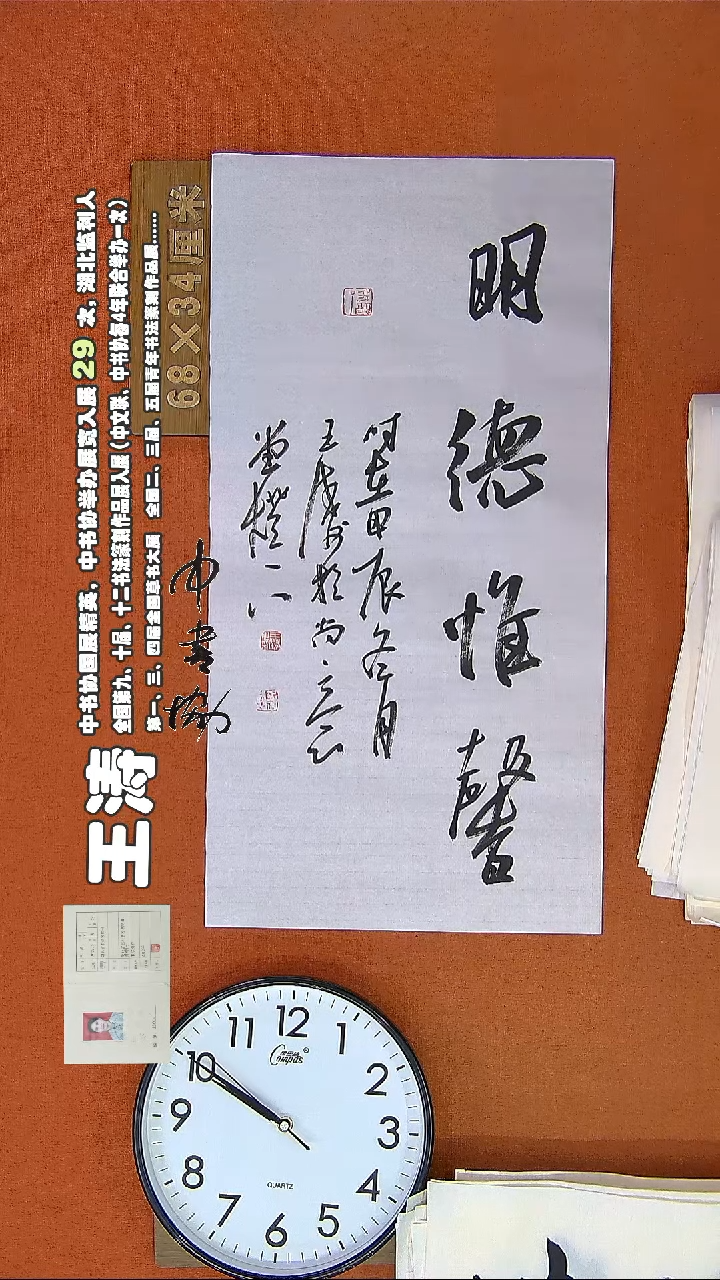 明德惟馨
时在甲辰冬月
王涛书于尚·京
堂樸一八
68×34厘米
中书协国展精英，中书协举办展览入展 29 次，湖北监利人
全国第九、十届、十二书法篆刻作品展入展（中文联、中书协每4年联合举办一次）
第一、三、四届全国草书大展 全国二、三届、五届青年书法篆刻作品展……
中书协
王涛
12
1
2
3
4
5
6
7
8
9
10
11
Compas
QUARTZ